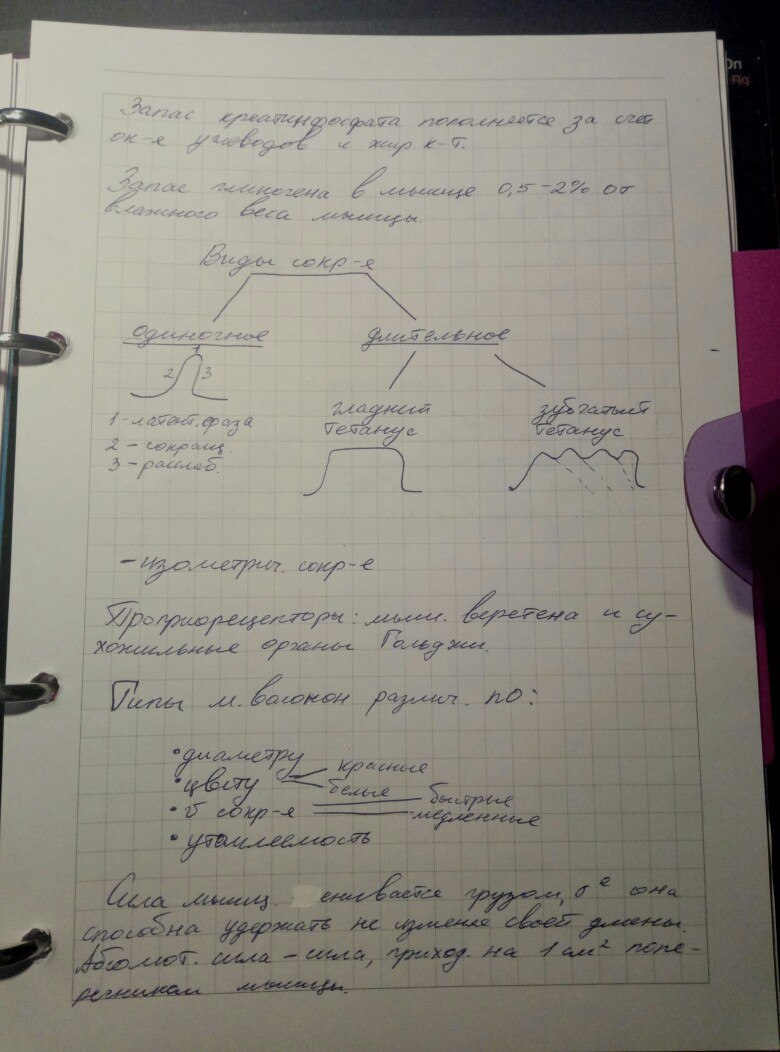 Запас креатинфосфата пополняется за счет
ок-я углеводов и жир к-т.
Запас гликогена в мышце 0,5-2% от
влажного веса мышцы.
Виды сокр-я
одиночное
длительное
1
2
3
1-латент. фаза
2 - сокращ.
3 - расслаб.
гладкий
тетанус
зубчатый
тетанус
- изометрич. сокр-е
Проприорецепторы: мыш. веретена и су-
хожильные органы Гольджи.
Типы м. волокон различ. по:
• диаметру
• цвету
красные
белые
• v сокр-я
быстрые
медленные
• утомляемость
Сила мышц енивается грузом, она
способна удержать не изменяя своей длины.
Абсолют. сила - сила, приход. на 1 см² попе-
речником мышцы.